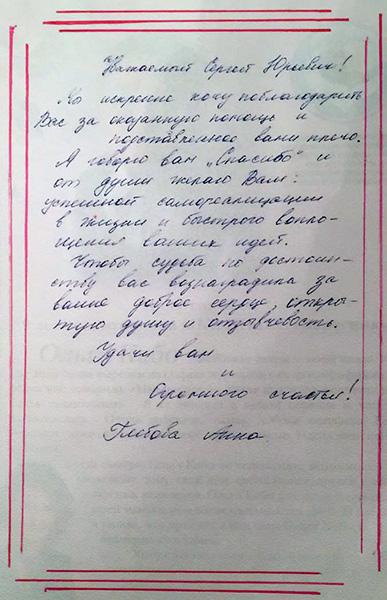 Уважаемый Сергей Юрьевич!
искренне хочу поблагодарить
Вас за оказанную помощь и
подставленное вами плечо.
Я говорю вам „Спасибо" и
от души желаю Вам:
успешной самореализации
в жизни и быстрого вопло-
щения ваших идей.
Чтобы судьба по достоин-
ству вас вознаградила за
ваше доброе сердце, откры-
тую душу и отзывчивость.
Удачи вам
и
Огромного счастья!
Глебова Анна